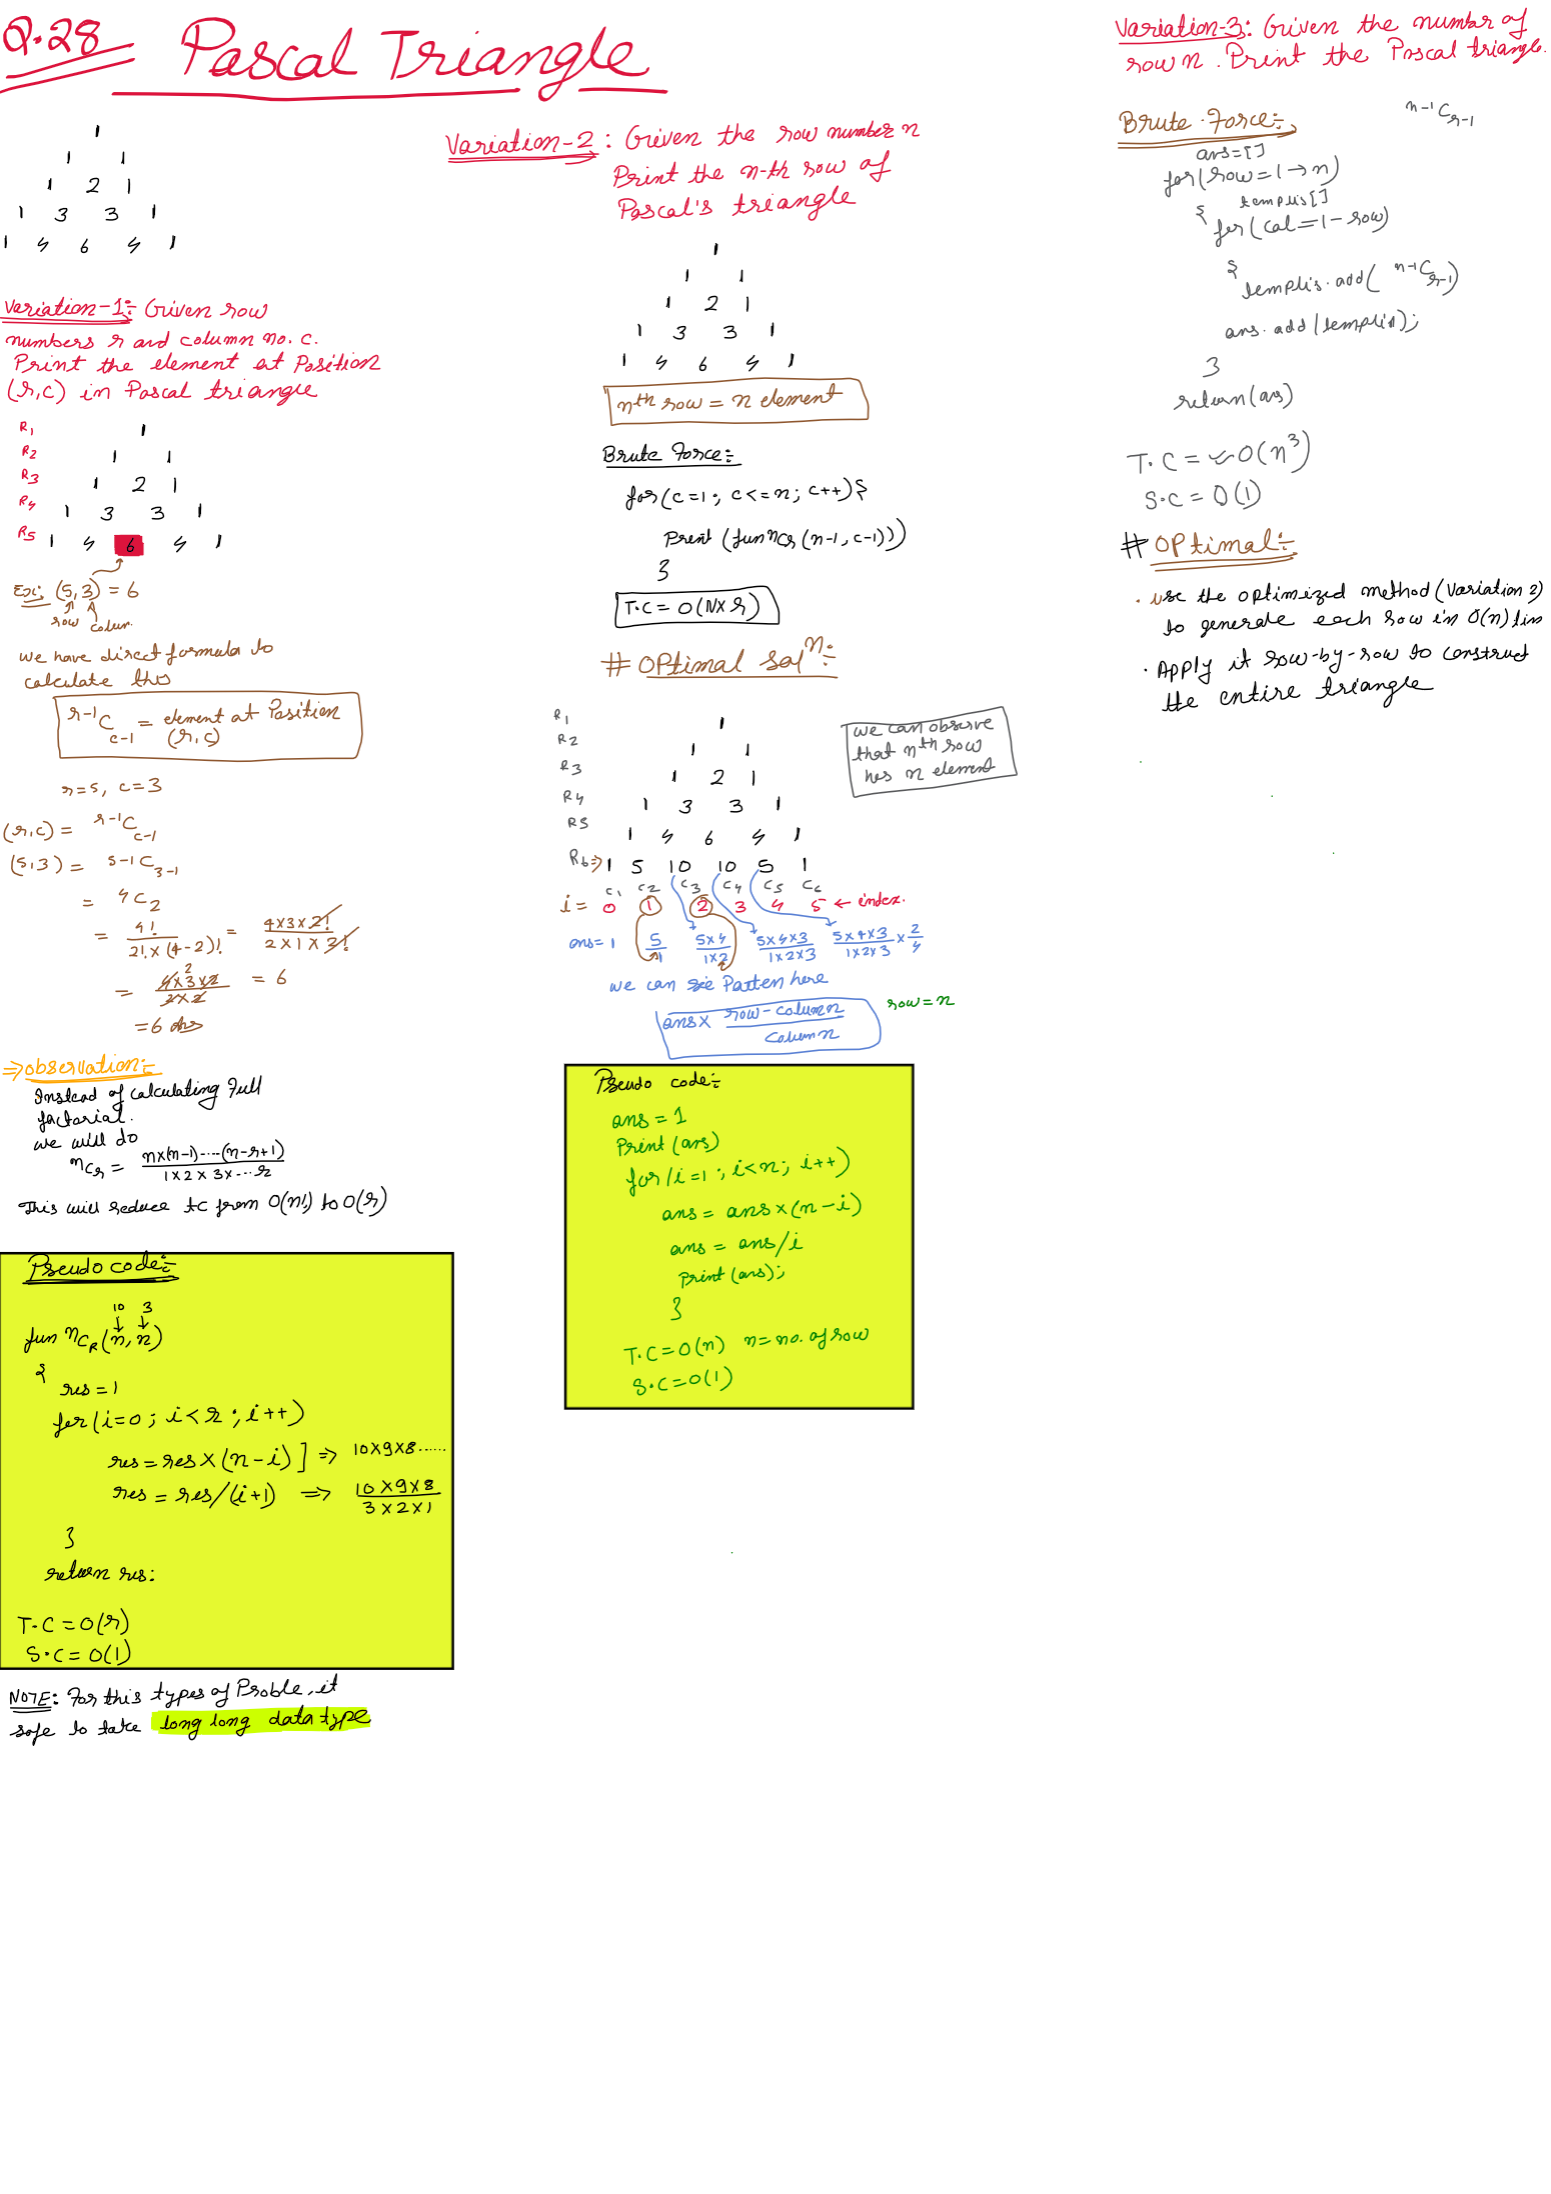 Q.28 Pascal Triangle
1
1 1
1 2 1
1 3 3 1
1 4 6 4 1
Variation-1:- Given row
numbers r and column no. c.
Print the element at Position
(r,c) in Pascal triangle
R1 1
R2 1 1
R3 1 2 1
R4 1 3 3 1
R5 1 4 6 4 1
Ex:- (5,3) = 6
row colum.
we have direct formula to
calculate this
r-1Cc-1 = element at Position (r,c)
r=5, c=3
(r,c) = r-1Cc-1
(5,3) = 5-1C3-1
= 4C2
= 4! / 2! x (4-2)! = 4x3x2! / 2x1x2!
= 4x3x2 / 2x2 2 = 6
= 6 Ans
⇒ observation:-
Instead of calculating Full
factorial.
we will do
nCr = nx(n-1)----(n-r+1) / 1x2x3x---r
This will reduce tc from O(n!) to O(r)
Pseudo code:-
10 3
↓ ↓
fun nCR(n, n)
{
res = 1
for(i=0; i<r; i++)
res = res x (n-i) ] ⇒ 10x9x8......
res = res/(i+1) ⇒ 10x9x8 / 3x2x1
}
return res:
T.C = O(r)
S.C = O(1)
NOTE: For this types of Proble, it
safe to take long long data type
Variation-2: Given the row number n
Print the n-th row of
Pascal's triangle
1
1 1
1 2 1
1 3 3 1
1 4 6 4 1
nth row = n element
Brute Force:-
for(c=1; c<=n; c++){
Print (funnCr(n-1, c-1)))
}
T.C = O(NXr)
# OPtimal soln:-
R1 1
R2 1 1
R3 1 2 1
R4 1 3 3 1
R5 1 4 6 4 1
R6⇒ 1 5 10 10 5 1
we can observe
that nth row
has n element
C1 C2 C3 C4 C5 C6
i = 0 1 2 3 4 5 ← index.
ans= 1 5/1 5x4/1x2 5x4x3/1x2x3 5x4x3/1x2x3 x 2/4
we can see Patten here
ansx row-column / column row=n
Pseudo code:-
ans = 1
Print (ans)
for(i=1; i<n; i++)
ans = ans x (n-i)
ans = ans/i
Print (ans);
}
T.C = O(n) n = no. of row
S.C = O(1)
Variation-3: Given the number of
row n. Print the Pascal triangle.
Brute Force:- n-1Cr-1
ans=[]
for(row=1→n)
templis[]
{ for(cal=1-row)
{ templis.add( n-1Cr-1)
ans.add(templis);
}
return(ans)
T.C = ~O(n3)
S.C = O(1)
# OPtimal:-
. use the optimized method (Variation 2)
to generate each row in O(n) tim
. Apply it row-by-row to construct
the entire triangle